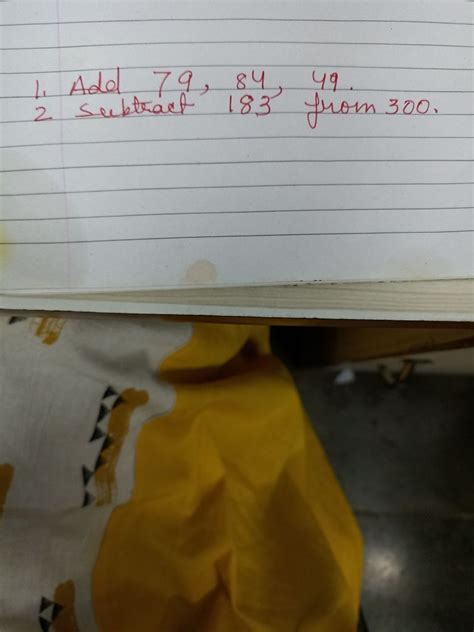 1. Add 79, 84, 49.
2 Subtract 183 from 300.